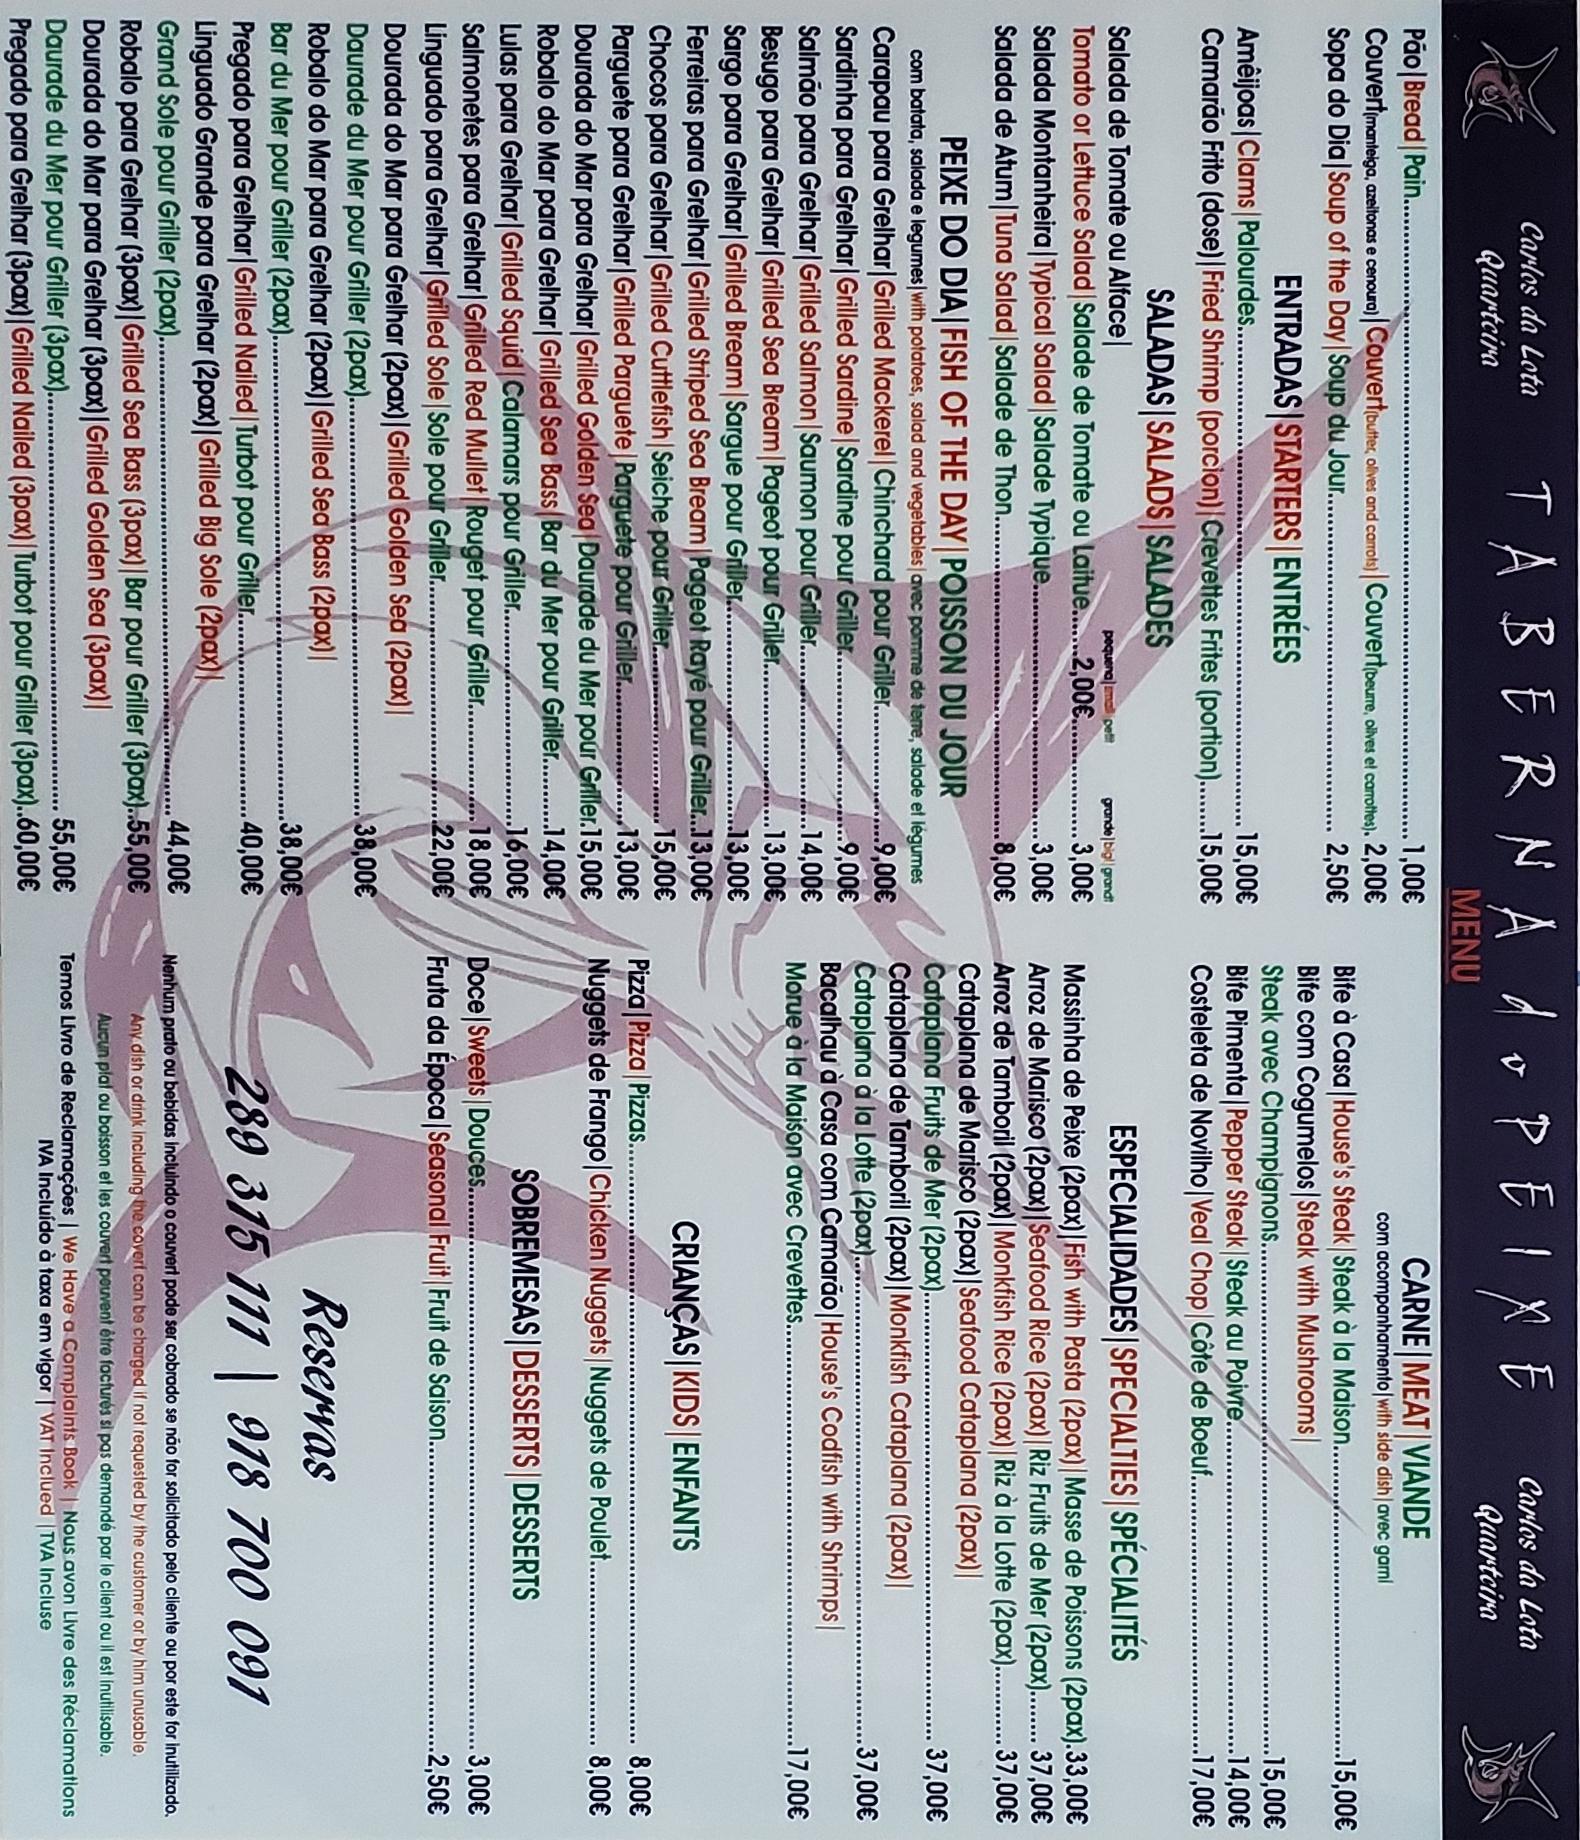 Carlos da Lota
Quarteira
TABERNA do PEIXE
Carlos da Lota
Quarteira
MENU
Pão|Bread|Pain.......... 1,00€
Couvert(manteiga, azeitonas e cenoura)|Couvert(butter, olives and carrots)|Couvert(beurre, olives et carottes). 2,00€
Sopa do Dia|Soup of the Day|Soup du Jour.......... 2,50€
ENTRADAS|STARTERS|ENTRÉES
Amêijoas|Clams|Palourdes.......... 15,00€
Camarão Frito (dose)|Fried Shrimp (porcion)|Crevettes Frites (portion).......15,00€
SALADAS|SALADS|SALADES
Salada de Tomate ou Alface| pequena|small|petit grande|big|grandt
Tomato or Lettuce Salad|Salade de Tomate ou Laitue......2,00€.......... 3,00€
Salada Montanheira|Typical Salad|Salade Typique.......... 3,00€
Salada de Atum|Tuna Salad|Salade de Thon.......... 8,00€
PEIXE DO DIA|FISH OF THE DAY|POISSON DU JOUR
com batata, salada e legumes|with potatoes, salad and vegetables|avec pomme de terre, salade et légumes
Carapau para Grelhar|Grilled Mackerel|Chinchard pour Griller..........9,00€
Sardinha para Grelhar|Grilled Sardine|Sardine pour Griller..........9,00€
Salmão para Grelhar|Grilled Salmon|Saumon pour Griller.......... 14,00€
Besugo para Grelhar|Grilled Sea Bream|Pageot pour Griller.......... 13,00€
Sargo para Grelhar|Grilled Bream|Sargue pour Griller..........13,00€
Ferreiras para Grelhar|Grilled Striped Sea Bream|Pageot Rayé pour Griller...13,00€
Chocos para Grelhar|Grilled Cuttlefish|Seiche pour Griller..........15,00€
Parguete para Grelhar|Grilled Parguete|Parguete pour Griller..........13,00€
Dourada do Mar para Grelhar|Grilled Golden Sea|Daurade du Mer pour Griller.15,00€
Robalo do Mar para Grelhar|Grilled Sea Bass|Bar du Mer pour Griller.......14,00€
Lulas para Grelhar|Grilled Squid|Calamars pour Griller..........16,00€
Salmonetes para Grelhar|Grilled Red Mullet|Rouget pour Griller.......... 18,00€
Linguado para Grelhar|Grilled Sole|Sole pour Griller..........22,00€
Dourada do Mar para Grelhar (2pax)|Grilled Golden Sea (2pax)|
Daurade du Mer pour Griller (2pax)..........38,00€
Robalo do Mar para Grelhar (2pax)|Grilled Sea Bass (2pax)|
Bar du Mer pour Griller (2pax)..........38,00€
Pregado para Grelhar|Grilled Nailed|Turbot pour Griller..........40,00€
Linguado Grande para Grelhar (2pax)|Grilled Big Sole (2pax)|
Grand Sole pour Griller (2pax)..........44,00€
Robalo para Grelhar (3pax)|Grilled Sea Bass (3pax)|Bar pour Griller (3pax)..55,00€
Dourada do Mar para Grelhar (3pax)|Grilled Golden Sea (3pax)|
Daurade du Mer pour Griller (3pax).......... 55,00€
Pregado para Grelhar (3pax)|Grilled Nailed (3pax)|Turbot pour Griller (3pax)..60,00€
CARNE|MEAT|VIANDE
com acompanhamento|with side dish|avec garni
Bife à Casa|House's Steak|Steak à la Maison..........15,00€
Bife com Cogumelos|Steak with Mushrooms|
Steak avec Champignons..........15,00€
Bife Pimenta|Pepper Steak|Steak au Poivre..........14,00€
Costeleta de Novilho|Veal Chop|Côte de Boeuf..........17,00€
ESPECIALIDADES|SPECIALTIES|SPÉCIALITÉS
Massinha de Peixe (2pax)|Fish with Pasta (2pax)|Masse de Poissons (2pax).33,00€
Arroz de Marisco (2pax)|Seafood Rice (2pax)|Riz Fruits de Mer (2pax)...... 37,00€
Arroz de Tamboril (2pax)|Monkfish Rice (2pax)|Riz à la Lotte (2pax).......... 37,00€
Cataplana de Marisco (2pax)|Seafood Cataplana (2pax)|
Cataplana Fruits de Mer (2pax).......... 37,00€
Cataplana de Tamboril (2pax)|Monkfish Cataplana (2pax)|
Cataplana à la Lotte (2pax)..........37,00€
Bacalhau à Casa com Camarão|House's Codfish with Shrimps|
Morue à la Maison avec Crevettes..........17,00€
CRIANÇAS|KIDS|ENFANTS
Pizza|Pizza|Pizzas.......... 8,00€
Nuggets de Frango|Chicken Nuggets|Nuggets de Poulet.......... 8,00€
SOBREMESAS|DESSERTS|DESSERTS
Doce|Sweets|Douces.......... 3,00€
Fruta da Época|Seasonal Fruit|Fruit de Saison..........2,50€
Reservas
289 315 111 | 918 700 091
Nenhum prato ou bebidas incluindo o couvert pode ser cobrado se não for solicitado pelo cliente ou por este for inutilizado.
Any dish or drink including the covert can be charged if not requested by the customer or by him unusable.
Aucun plat ou boisson et les couvert peuvent être facturés si pas demandé par le client ou il est inutilisable.
Temos Livro de Reclamações | We Have a Complaints Book | Nous avon Livre des Réclamations
IVA Incluído à taxa em vigor | VAT Inclued |TVA Incluse